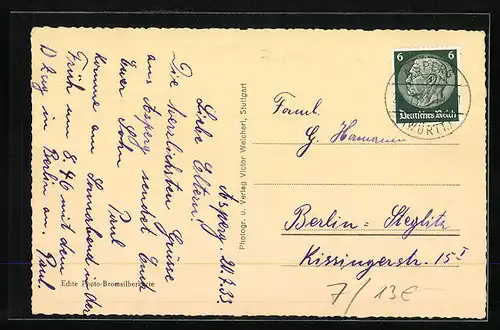 Asperg. 21.7.33
Liebe Eltern!
Die herrlichsten Grüsse
aus Asperg sendet Euch
Euer Sohn Paul
Komme am Sonnabend in der
Früh um 8.46 mit dem
D Zug in Berlin an. Paul.
Echte Photo-Bromsilberkarte
Photogr. u. Verlag Victor Weichert, Stuttgart
6 6
Deutsches Reich
ASPERG
(WÜRTT.)
Faml.
G. Hamann
Berlin = Steglitz
Kissingerstr. 15 I
7/13€